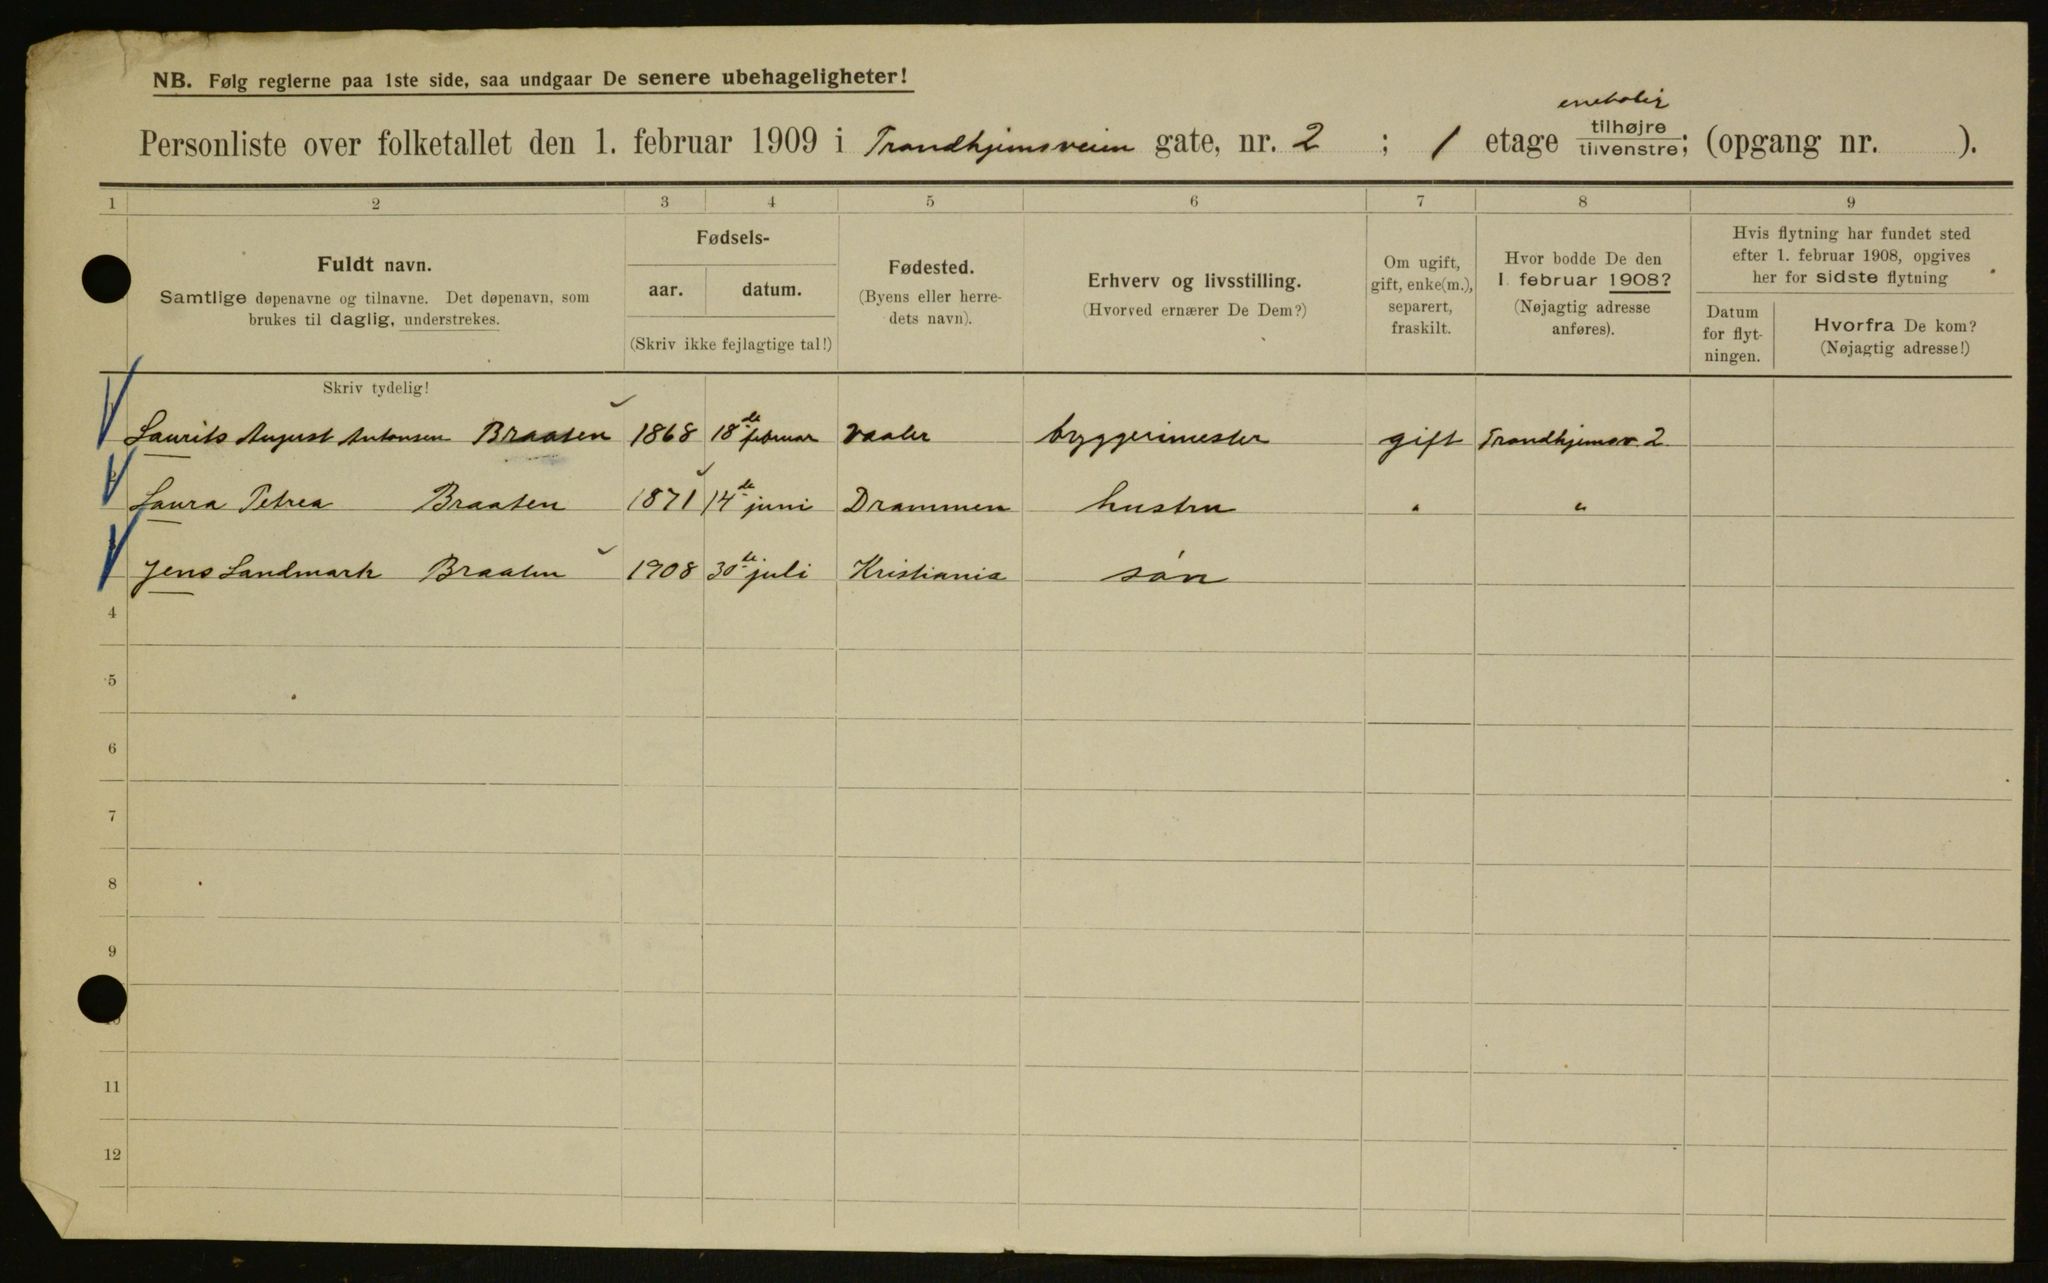 NB. Følg reglerne paa 1ste side, saa undgaar De senere ubehageligheter!
enebolig
Personliste over folketallet den 1. februar 1909 i Trondhjemsveien gate, nr. 2 ; 1 etage tilhøjre tilvenstre; (opgang nr. ).
1 2 3 4 5 6 7 8 9
Fuldt navn.
Samtlige døpenavne og tilnavne. Det døpenavn, som
brukes til daglig, understrekes.
Fødsels-
aar. datum.
(Skriv ikke fejlagtige tal!)
Fødested.
(Byens eller herre-
dets navn).
Erhverv og livsstilling.
(Hvorved ernærer De Dem?)
Om ugift,
gift, enke(m.),
separert,
fraskilt.
Hvor bodde De den
1. februar 1908?
(Nøjagtig adresse
anføres).
Hvis flytning har fundet sted
efter 1. februar 1908, opgives
her for sidste flytning
Datum
for flyt-
ningen.
Hvorfra De kom?
(Nøjagtig adresse!)
Skriv tydelig!
Laurits August Antonsen Braaten 1868 18de februar Vaaler byggermester gift Trondhjemsv. 2
Laura Petrea Braaten 1871 14de juni Drammen hustru " "
Jens Landmark Braaten 1908 30te juli Kristiania søn
4
5
6
7
8
9
10
11
12